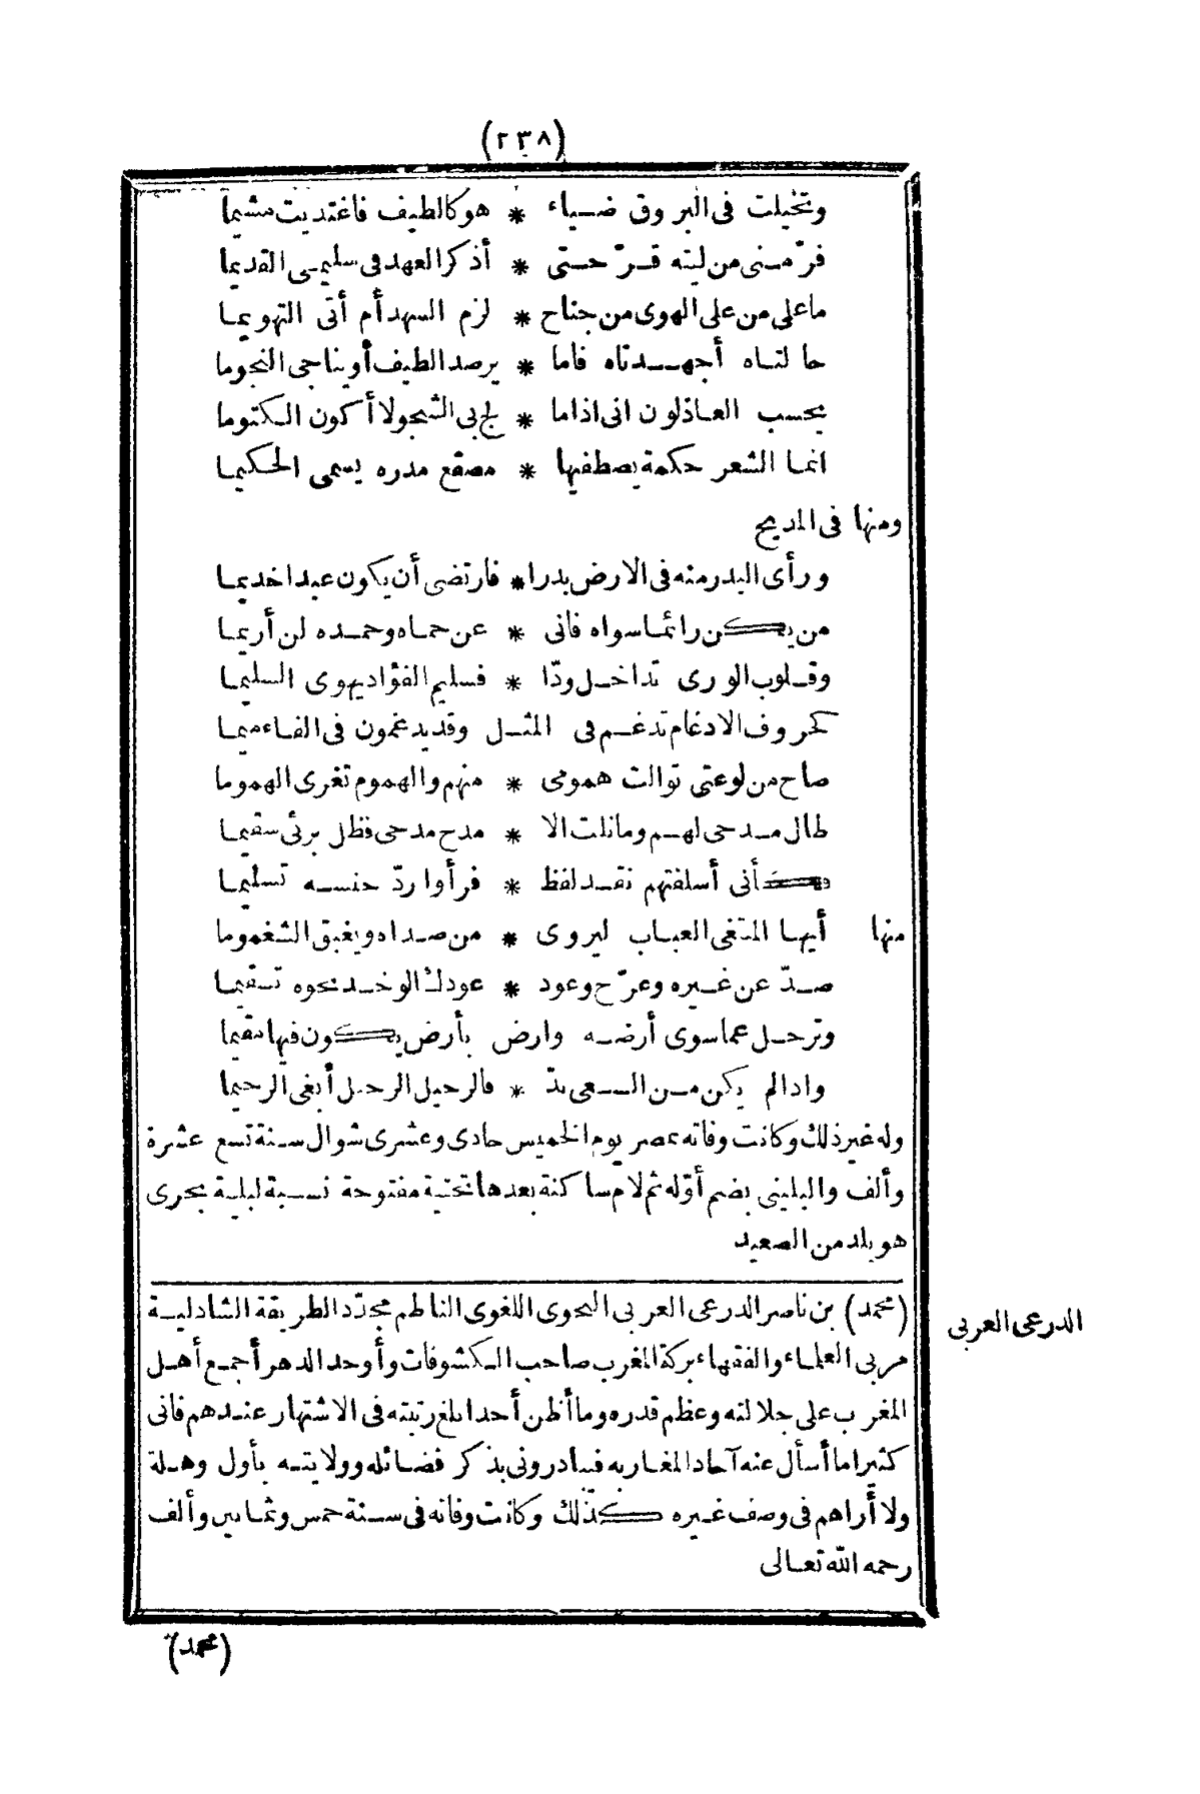 (٢٣٨)
وتخيلت فى البروق ضياء * هو كالطيف فاغتديت مشيما
فرّ منى من ليته قرّ حتى * أذكر العهد فى سليمى القديما
ما على من على الهوى من جناح * لزم السهد أم أتى التهويما
حالتاه أجهدتاه فاما * يرصد الطيف أو يناجى النجوما
يحسب العاذلون انى اذا ما * لج بى الشجو لا أكون الكتوما
انما الشعر حكمة يصطفيها * مصقع مدره يسمى الحكيما
ومنها فى المديح
ورأى البدر منه فى الارض بدرا * فارتضى أن يكون عبدا خديما
من يكن رائما سواه فانى * عن حماه وحمده لن أريما
وقلوب الورى تداخل ودّا * فسليم الفؤاد يهوى السليما
كحروف الادغام تدغم فى المثل وقد يدغمون فى الفاء ميما
صاح من لوعتى توالت همومى * منهم والهموم تغرى الهموما
طال مدحى لهم وما نلت الا * مدح مدحى فظل برئى سقيما
وكأنى أسلفتهم نقد لفظ * فرأوا ردّ جنسه تسليما
منها أيها المبتغى العباب ليروى * من صداه ويغبق الشغموما
صدّ عن غيره وعرّج وعود * عودك الوخد نحوه تستقيما
وترحل عما سوى أرضه وارض بأرض يكون فيها مقيما
واذا لم يكن من السعى بدّ * فالرحيل الرحيل أبغى الرحيما
وله غير ذلك وكانت وفاته عصر يوم الخميس حادى وعشرى شوال سنة تسع عشرة
وألف والبلينى بضم أوّله ثم لام ساكنة بعدها تحتية مفتوحة نسبة لبلية بجرى
هو بلد من الصعيد
(محمد) بن ناصر الدرعى العربى النحوى اللغوى الناظم مجدّد الطريقة الشاذلية
مربى العلماء والفقهاء بركة المغرب صاحب الكشوفات وأوحد الدهر أجمع أهل
المغرب على جلالته وعظم قدره وما أظن أحدا بلغ رتبته فى الاشتهار عندهم فانى
كثيرا ما أسأل عنه آحاد المغاربه فيبادرونى بذكر فضائله وولايته بأول وهلة
ولا أراهم فى وصف غيره كذلك وكانت وفاته فى سنة خمس وثمانين وألف
رحمه الله تعالى
الدرعى العربى
(محمد)